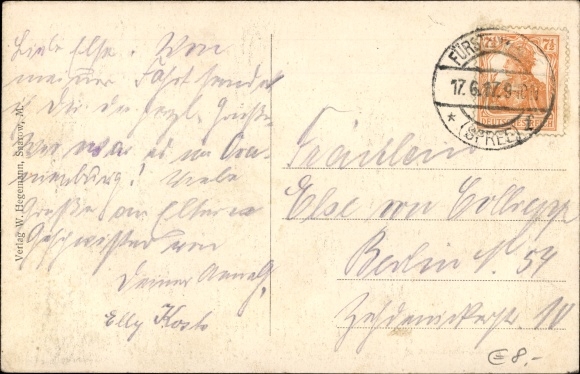 Liebe Else. Von
meiner Fahrt sendet
Dir die herzl. Grüße.
Wie war es in Ora-
nienburg? Viele
Grüße an Eltern u
Geschwister von
Deiner
Elly
Verlag W. Hegemann, Saarow, M.
7½
FÜRSTENWALDE
17.6.17. 9-10V
* (SPREE) *
Fräulein
Else von
Berlin N. 54
Zehdenickerstr. 10
€ 8,-